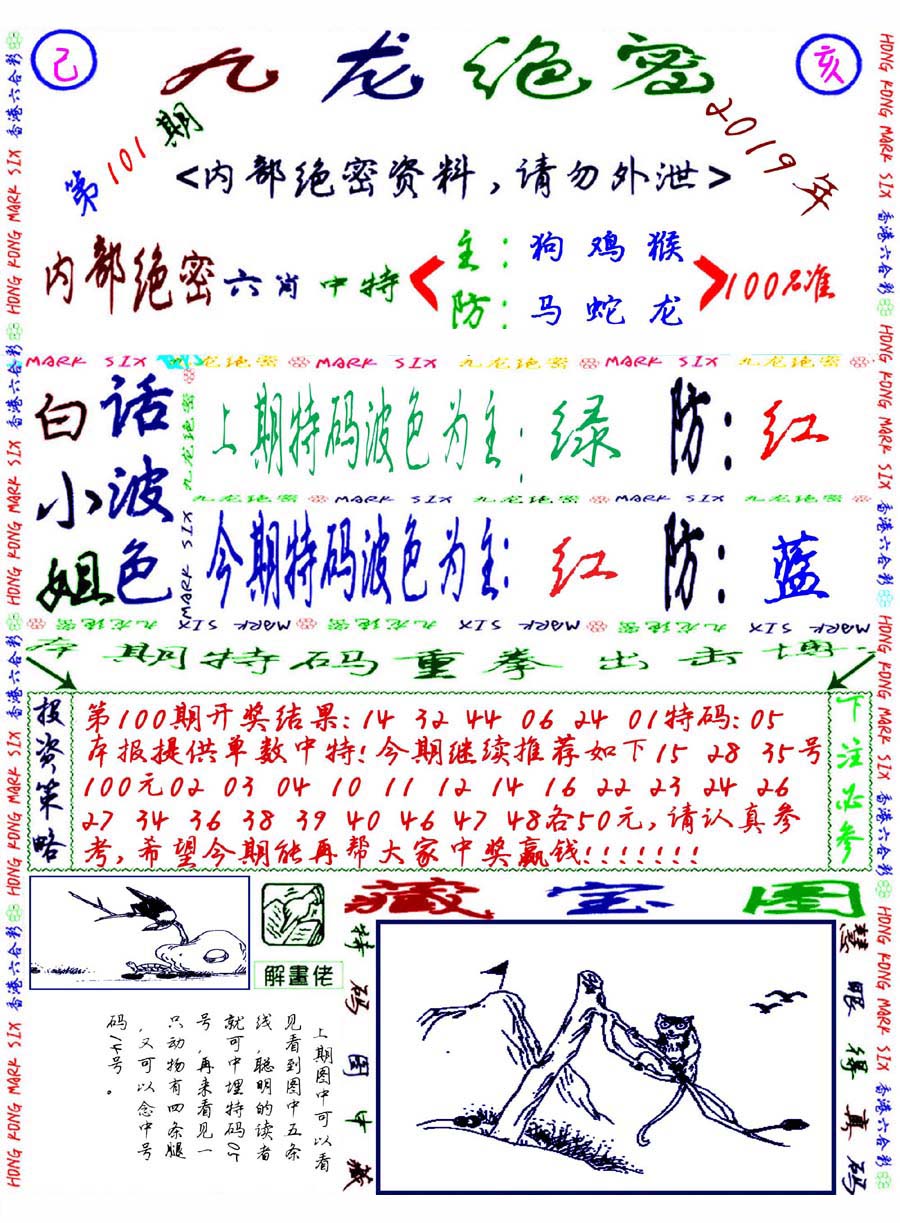 己
九龙绝密
亥
第101期
2019年
<内部绝密资料,请勿外泄>
内部绝密六肖中特
主:狗鸡猴
防:马蛇龙
100%准
MARK SIX 九龙绝密 MARK SIX 九龙绝密 MARK SIX 九龙绝密
白话
小波
姐色
上期特码波色为主:绿 防:红
九龙绝密 MARK SIX 九龙绝密 MARK SIX 九龙绝密
今期特码波色为主:红 防:蓝
九龙绝密
MARK SIX
MARK SIX 九龙绝密 MARK SIX 九龙绝密 MARK SIX 九龙绝密
本期特码重拳出击博
投资策略
第100期开奖结果:14 32 44 06 24 01特码:05
本报提供单数中特!今期继续推荐如下15 28 35号
100元02 03 04 10 11 12 14 16 22 23 24 26
27 34 36 38 39 40 46 47 48各50元,请认真参
考,希望今期能再帮大家中奖赢钱!!!!!!!
下注必参
解畫佬
藏宝图
特码图中藏
慧眼得真码
上期图中可以看
见看到图中五条
线,聪明的读者
就可中埋特码05
号,再来看见一
只动物有四条腿
,又可以念中号
码14号。
香港六合彩 HONG KONG MARK SIX 香港六合彩 HONG KONG MARK SIX 香港六合彩 HONG KONG MARK SIX 香港六合彩 HONG KONG MARK SIX
HONG KONG MARK SIX 香港六合彩 HONG KONG MARK SIX 香港六合彩 HONG KONG MARK SIX 香港六合彩 HONG KONG MARK SIX 香港六合彩